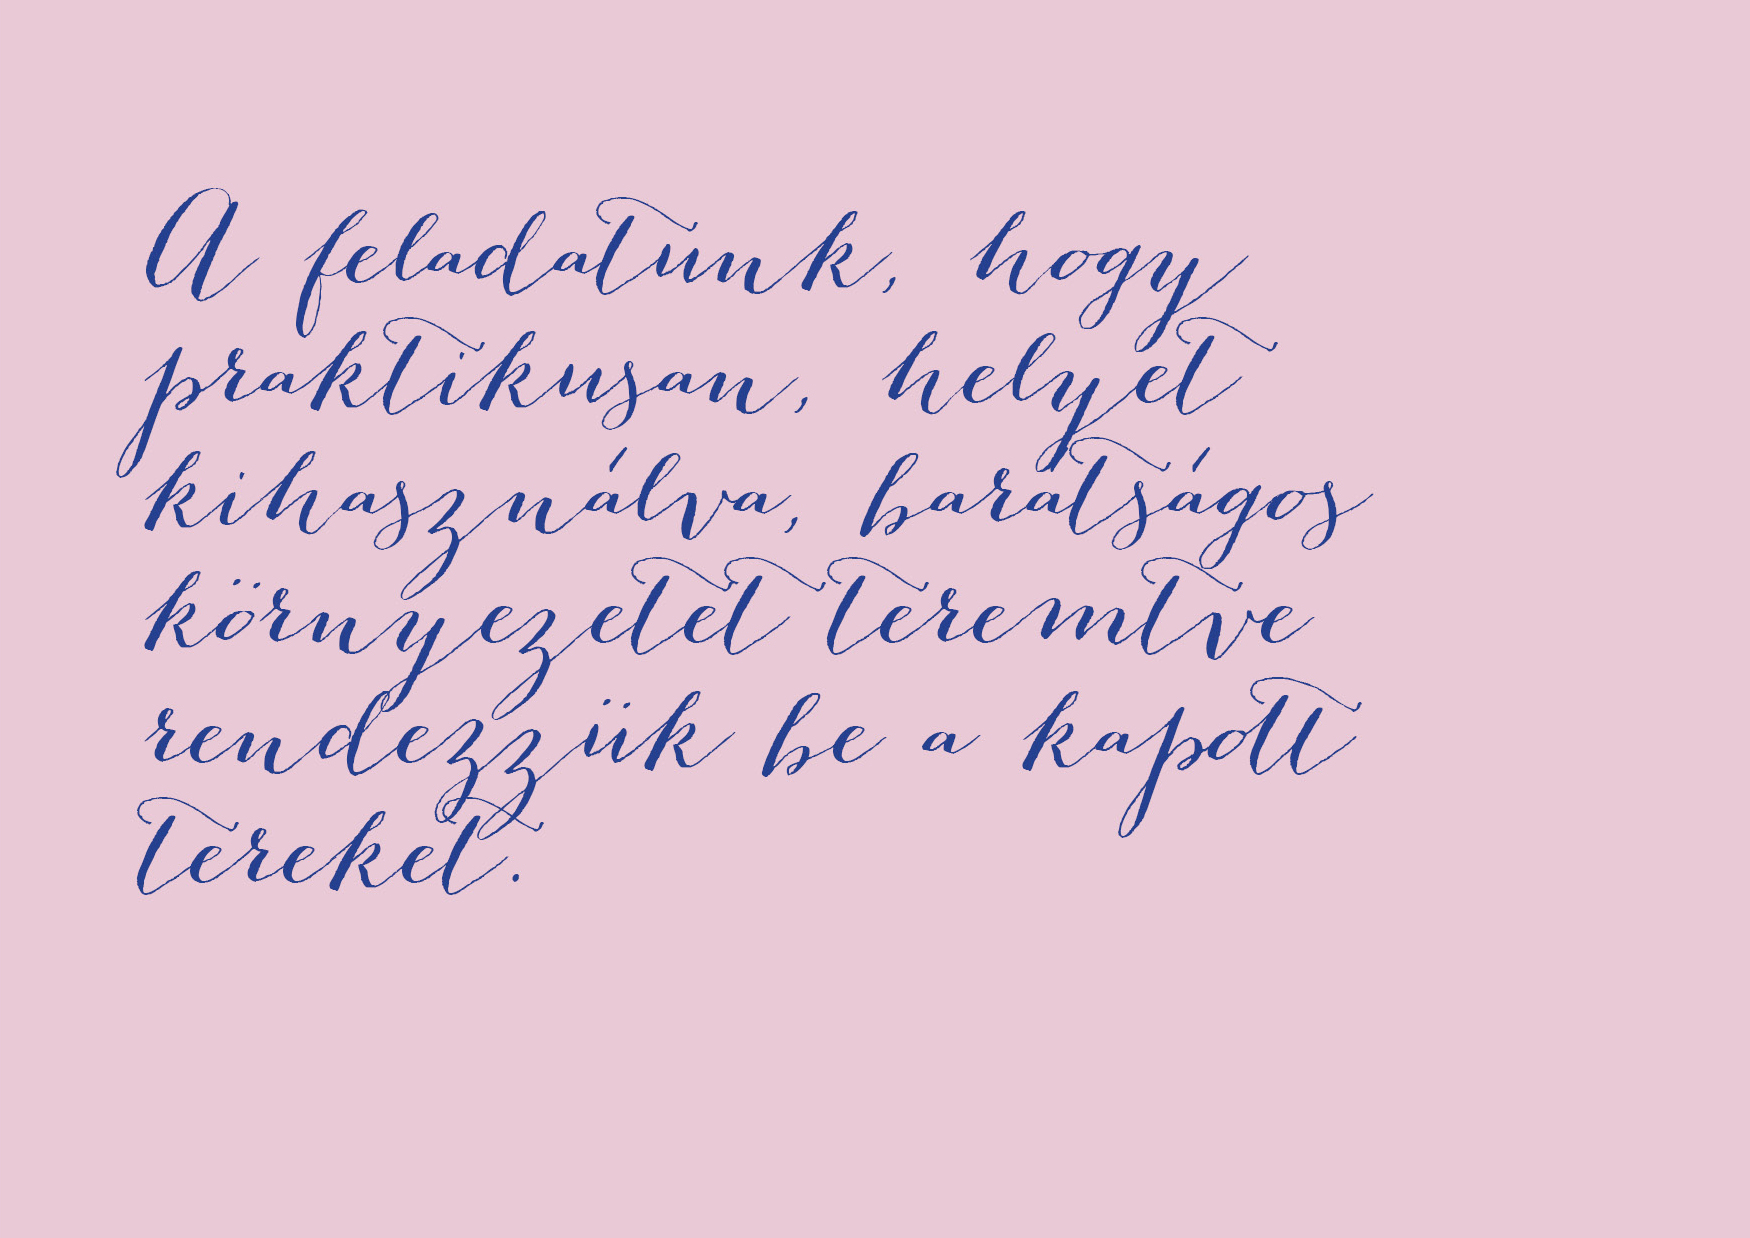 A feladatunk, hogy
praktikusan, helyet
kihasználva, barátságos
környezetet teremtve
rendezzük be a kapott
tereket.